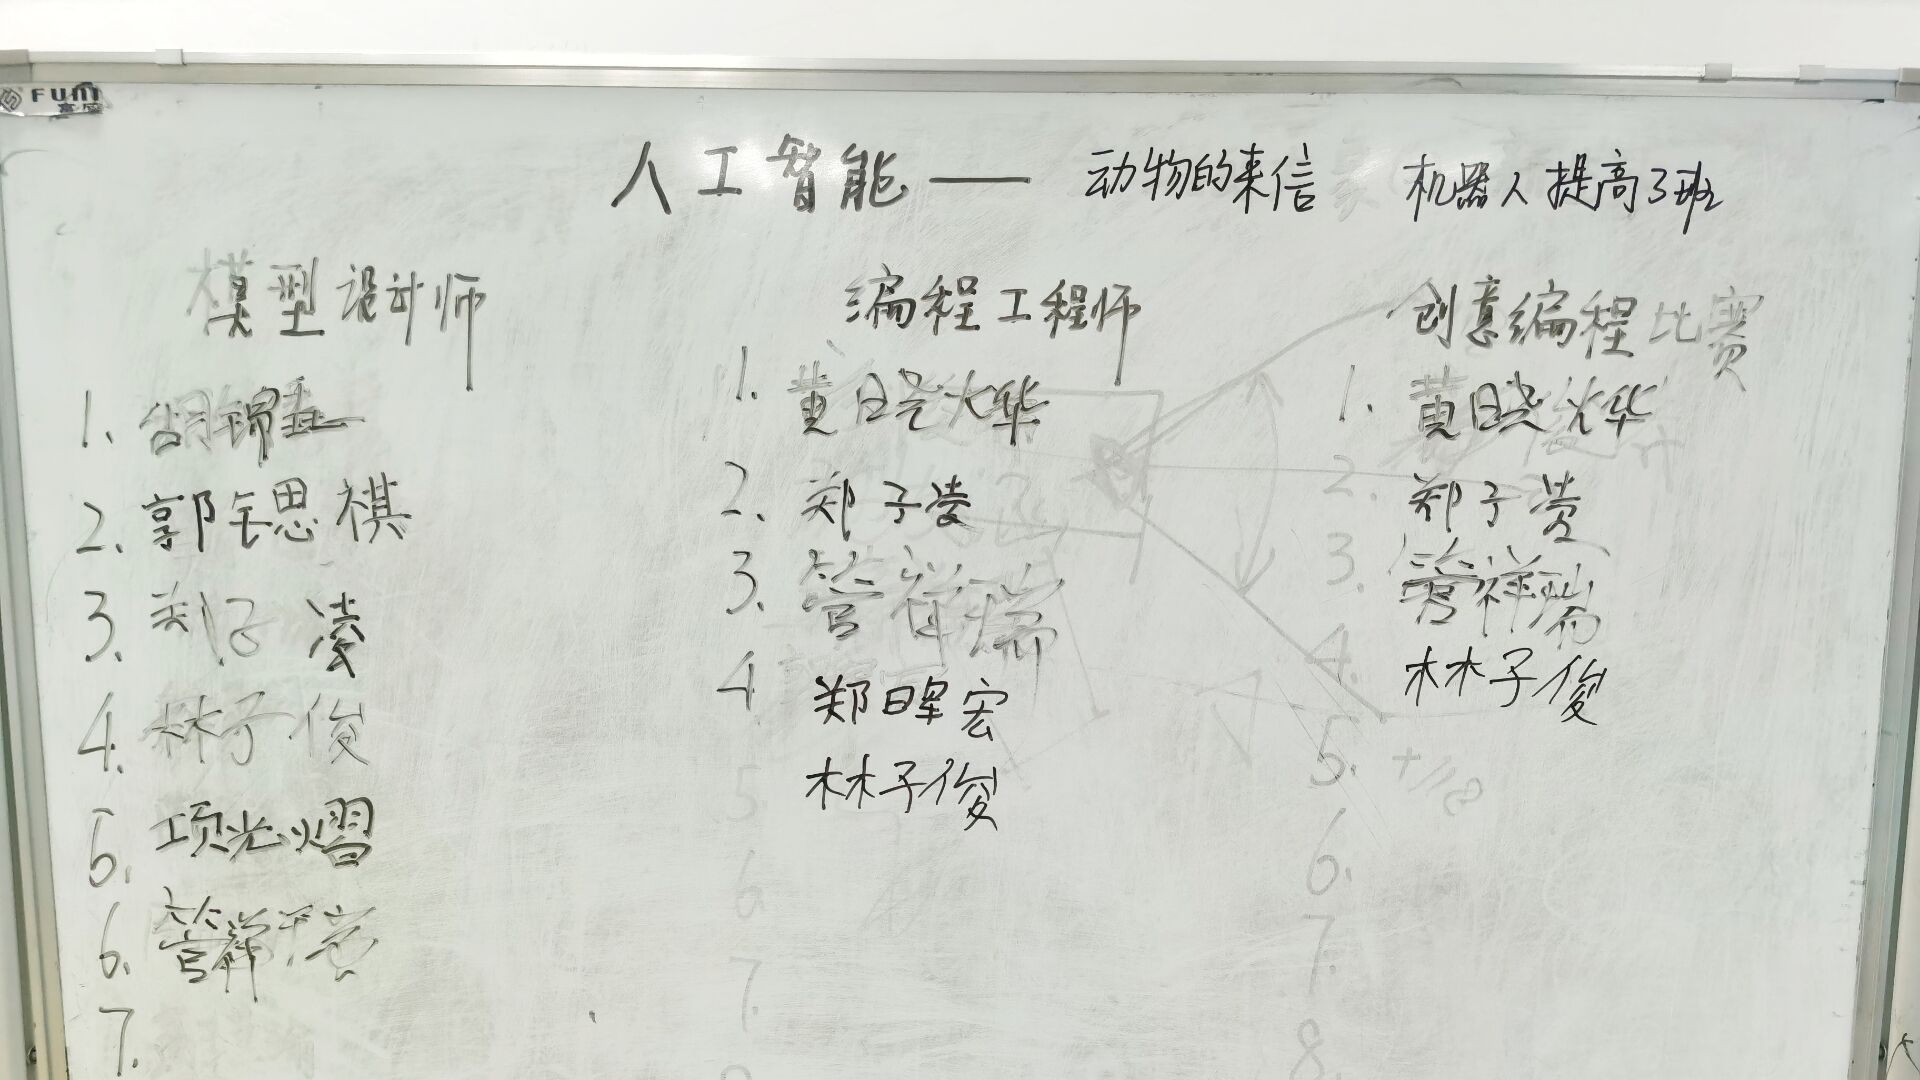 FUNI
人工智能—— 动物的来信 机器人提高3班
模型设计师
1. 胡锦
2. 郭钰思祺
3. 郑子凌
4. 林子俊
5. 项光熠
6. 管祥瑞
7.
编程工程师
1. 黄晓烨
2. 郑子凌
3. 管祥瑞
4 郑暐宏
5 林子俊
6
7.
创意编程比赛
1. 黄晓烨
2. 郑子凌
3. 管祥瑞
4. 林子俊
5. +118
6.
7.
8.